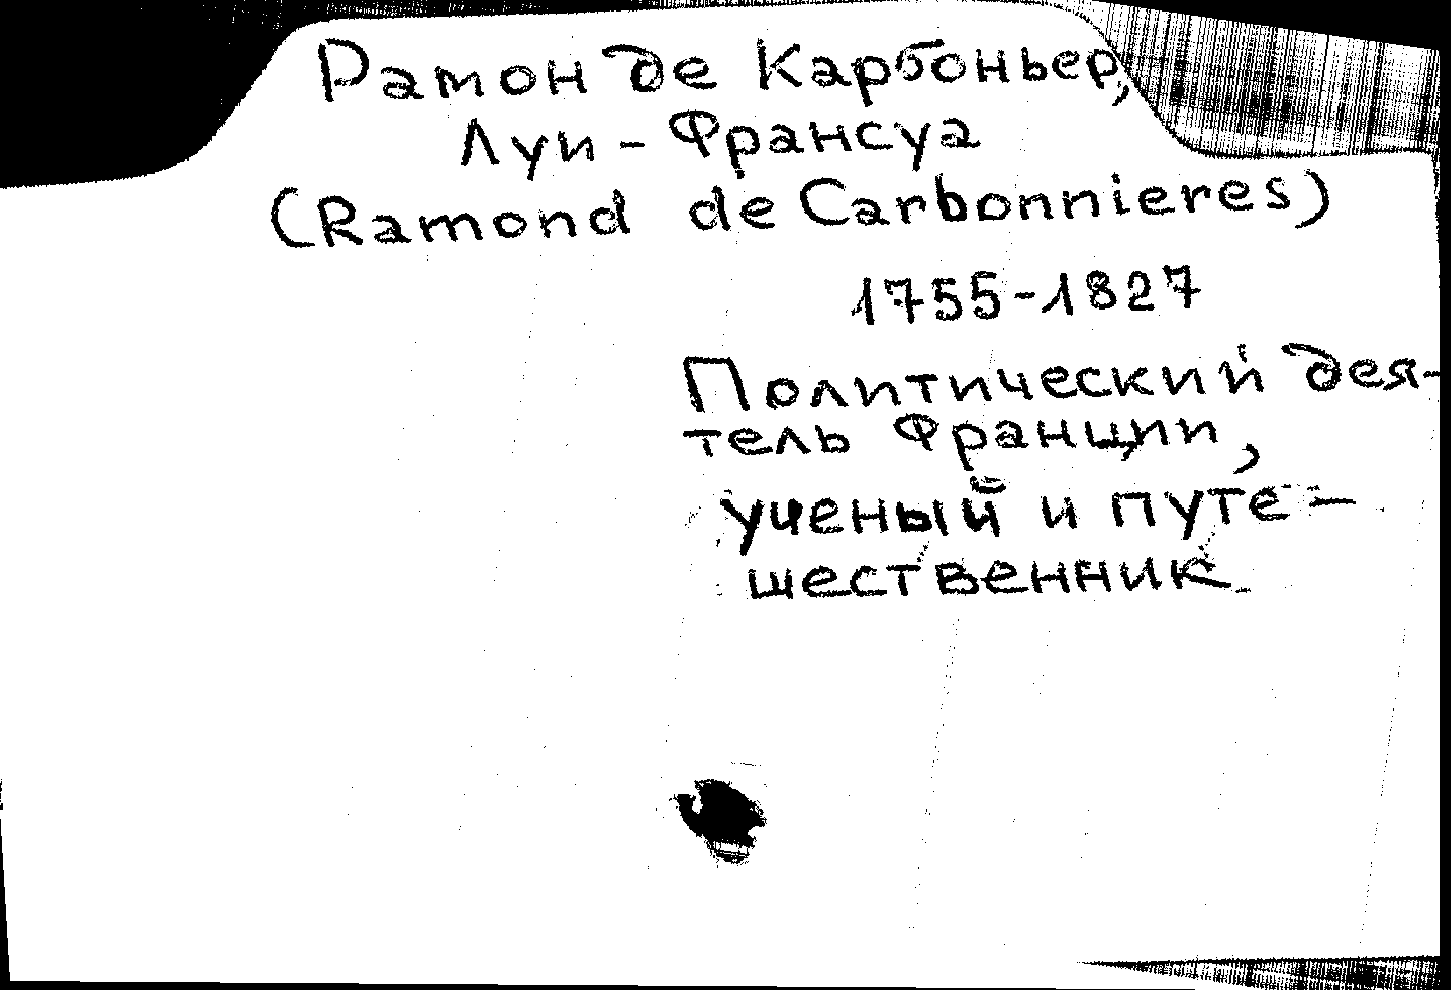 Рамон де Карбоньер,
Луи-Франсуа
(Ramond de Carbonnieres)
1755-1827
Политический дея-
тель Франции,
ученый и путе-
шественник